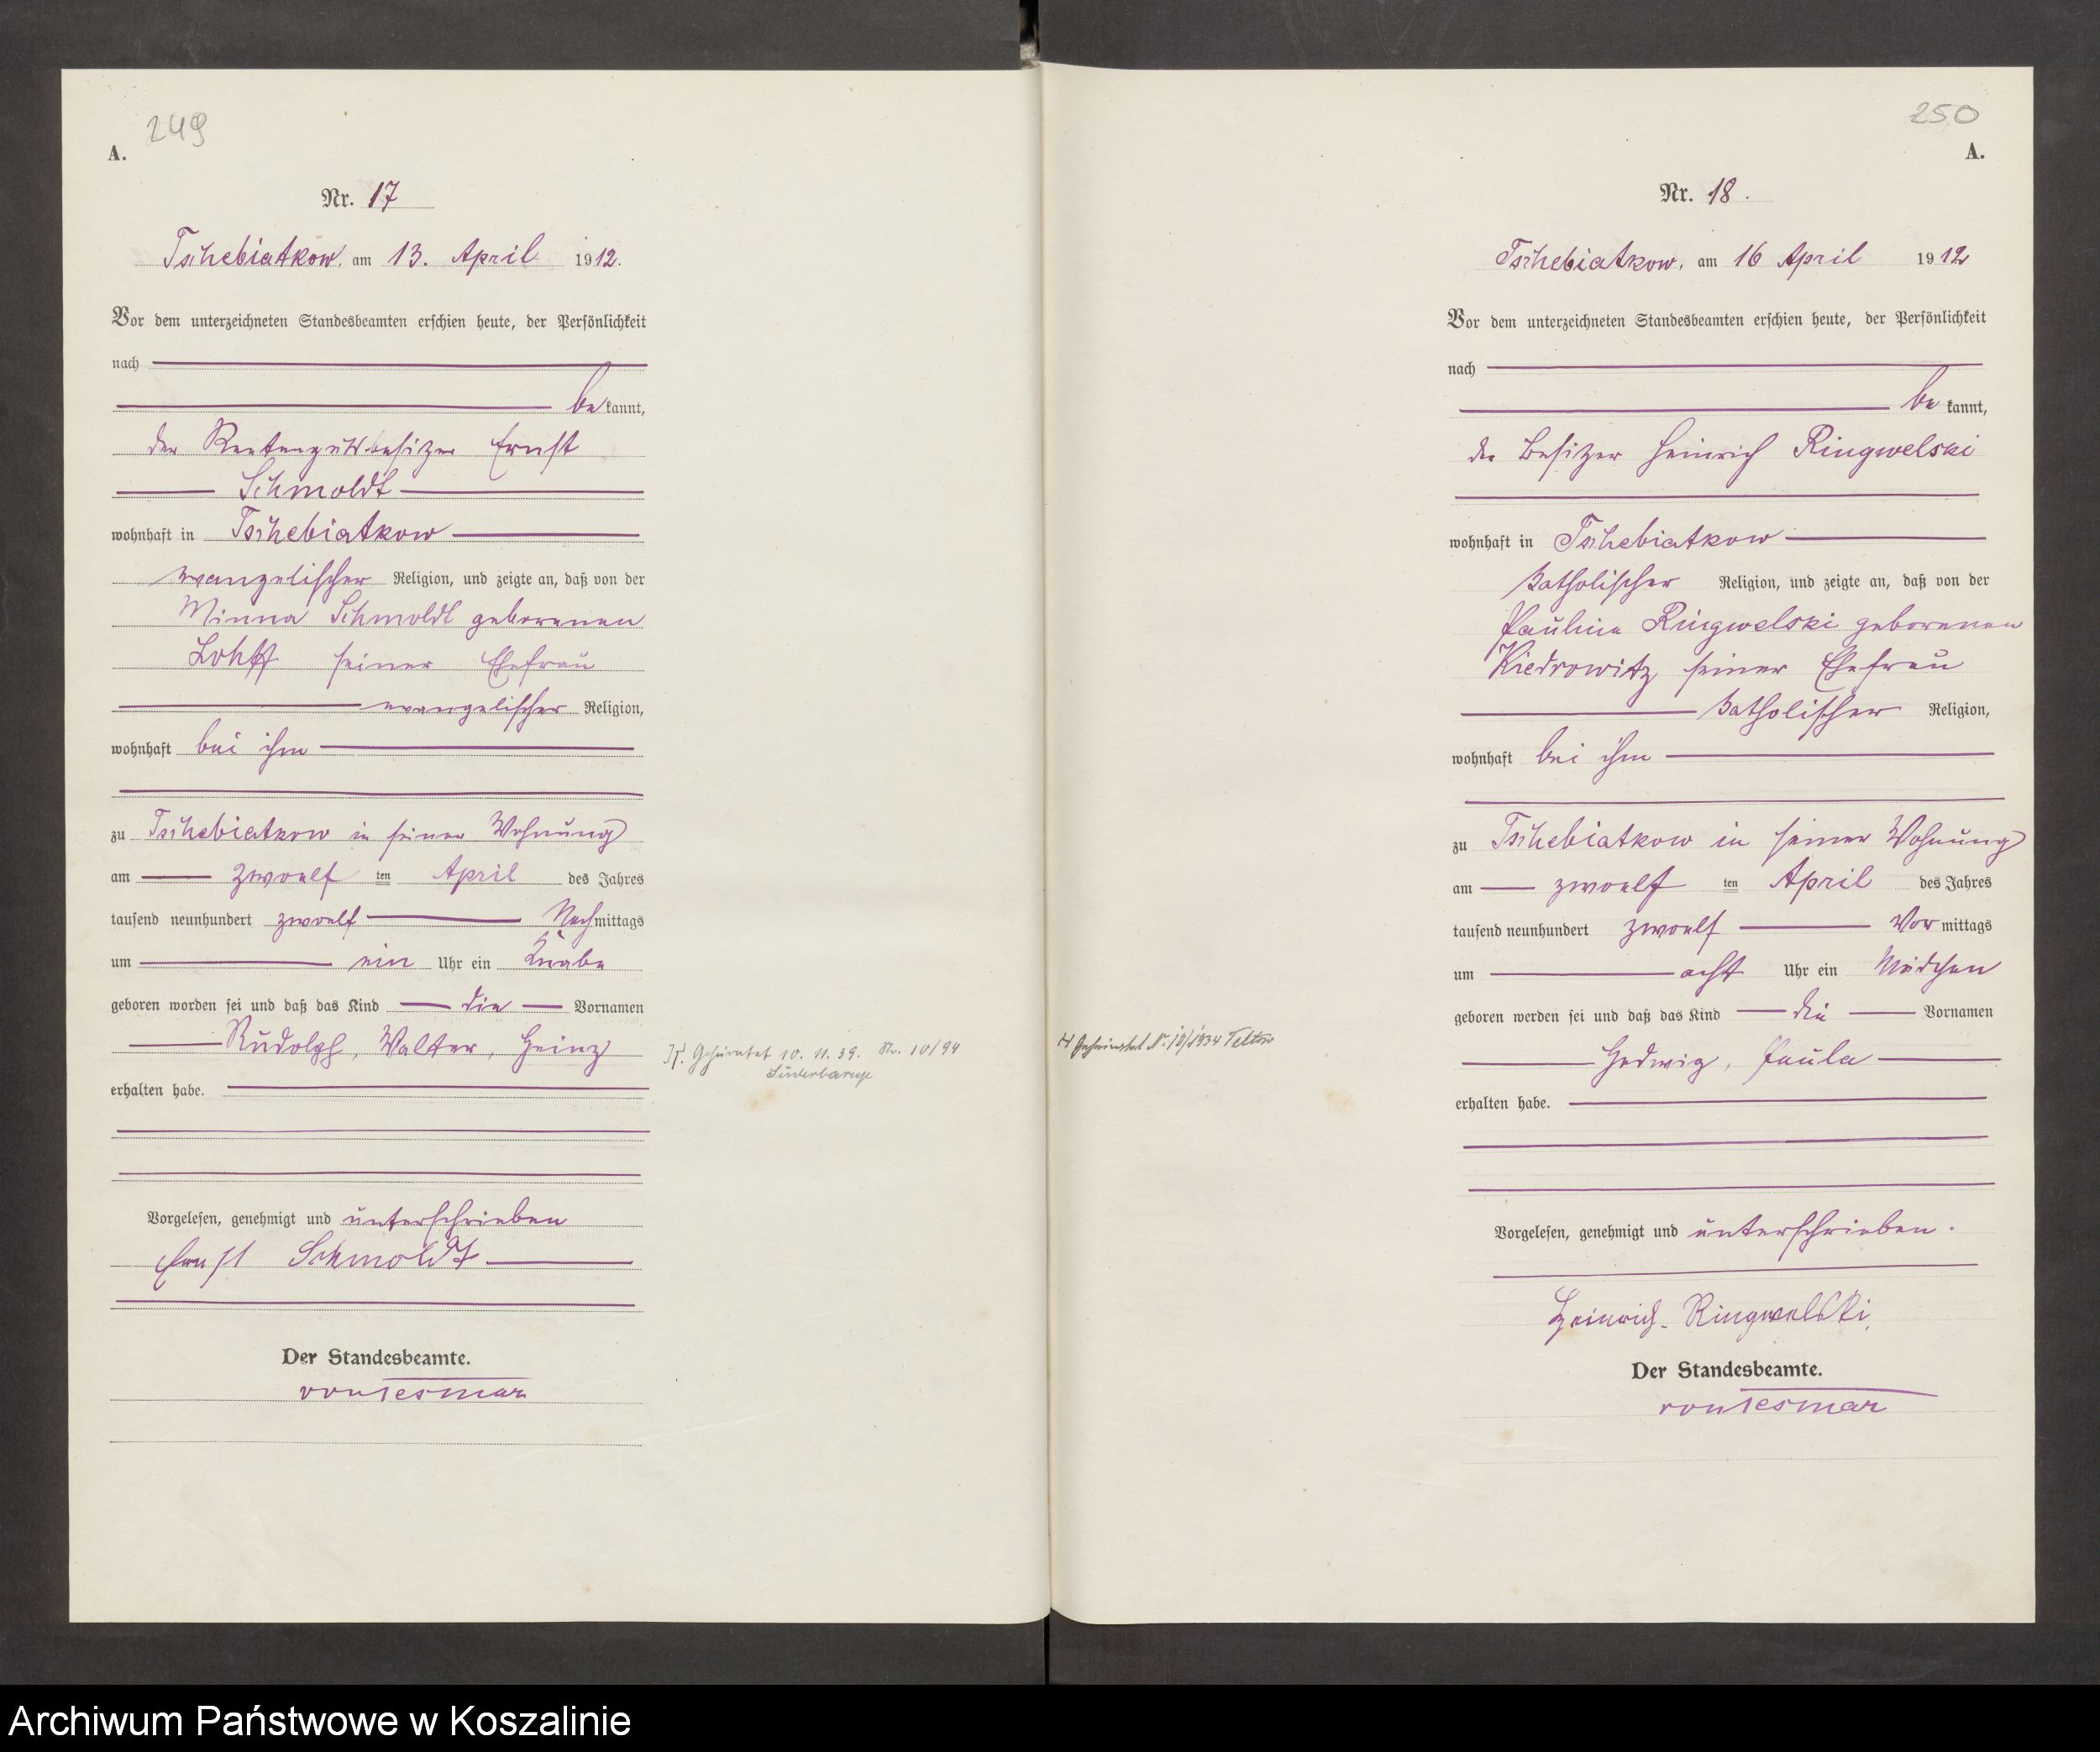 249
A.
Nr. 17
Tschebiatkow, am 13. April 1912.
Vor dem unterzeichneten Standesbeamten erschien heute, der Persönlichkeit
nach
bekannt,
der Rentengutsbesitzer Ernst
Schmoldt
wohnhaft in Tschebiatkow
evangelischer Religion, und zeigte an, daß von der
Minna Schmoldt geborenen
Lohff seiner Ehefrau
evangelischer Religion,
wohnhaft bei ihm
zu Tschebiatkow in seiner Wohnung
am zwoelf ten April des Jahres
tausend neunhundert zwoelf Nachmittags
um ein Uhr ein Knabe
geboren worden sei und daß das Kind die Vornamen
Rudolph, Walter, Heinz
erhalten habe.
Vorgelesen, genehmigt und unterschrieben
Ernst Schmoldt
Der Standesbeamte.
von Tesmar
Geheiratet 10. 11. 39. Nr. 10/94
Süderbarup
250
A.
Nr. 18.
Tschebiatkow, am 16 April 1912
Vor dem unterzeichneten Standesbeamten erschien heute, der Persönlichkeit
nach
bekannt,
der Besitzer Heinrich Ringwelski
wohnhaft in Tschebiatkow
katholischer Religion, und zeigte an, daß von der
Pauline Ringwelski geborenen
Kiedrowitz seiner Ehefrau
katholischer Religion,
wohnhaft bei ihm
zu Tschebiatkow in seiner Wohnung
am zwoelf ten April des Jahres
tausend neunhundert zwoelf Vormittags
um acht Uhr ein Mädchen
geboren werden sei und daß das Kind die Vornamen
Hedwig, Paula
erhalten habe.
Vorgelesen, genehmigt und unterschrieben.
Heinrich Ringwelski.
Der Standesbeamte.
von Tesmar
Geheiratet Nr. 10/1934 Teltow
Archiwum Państwowe w Koszalinie